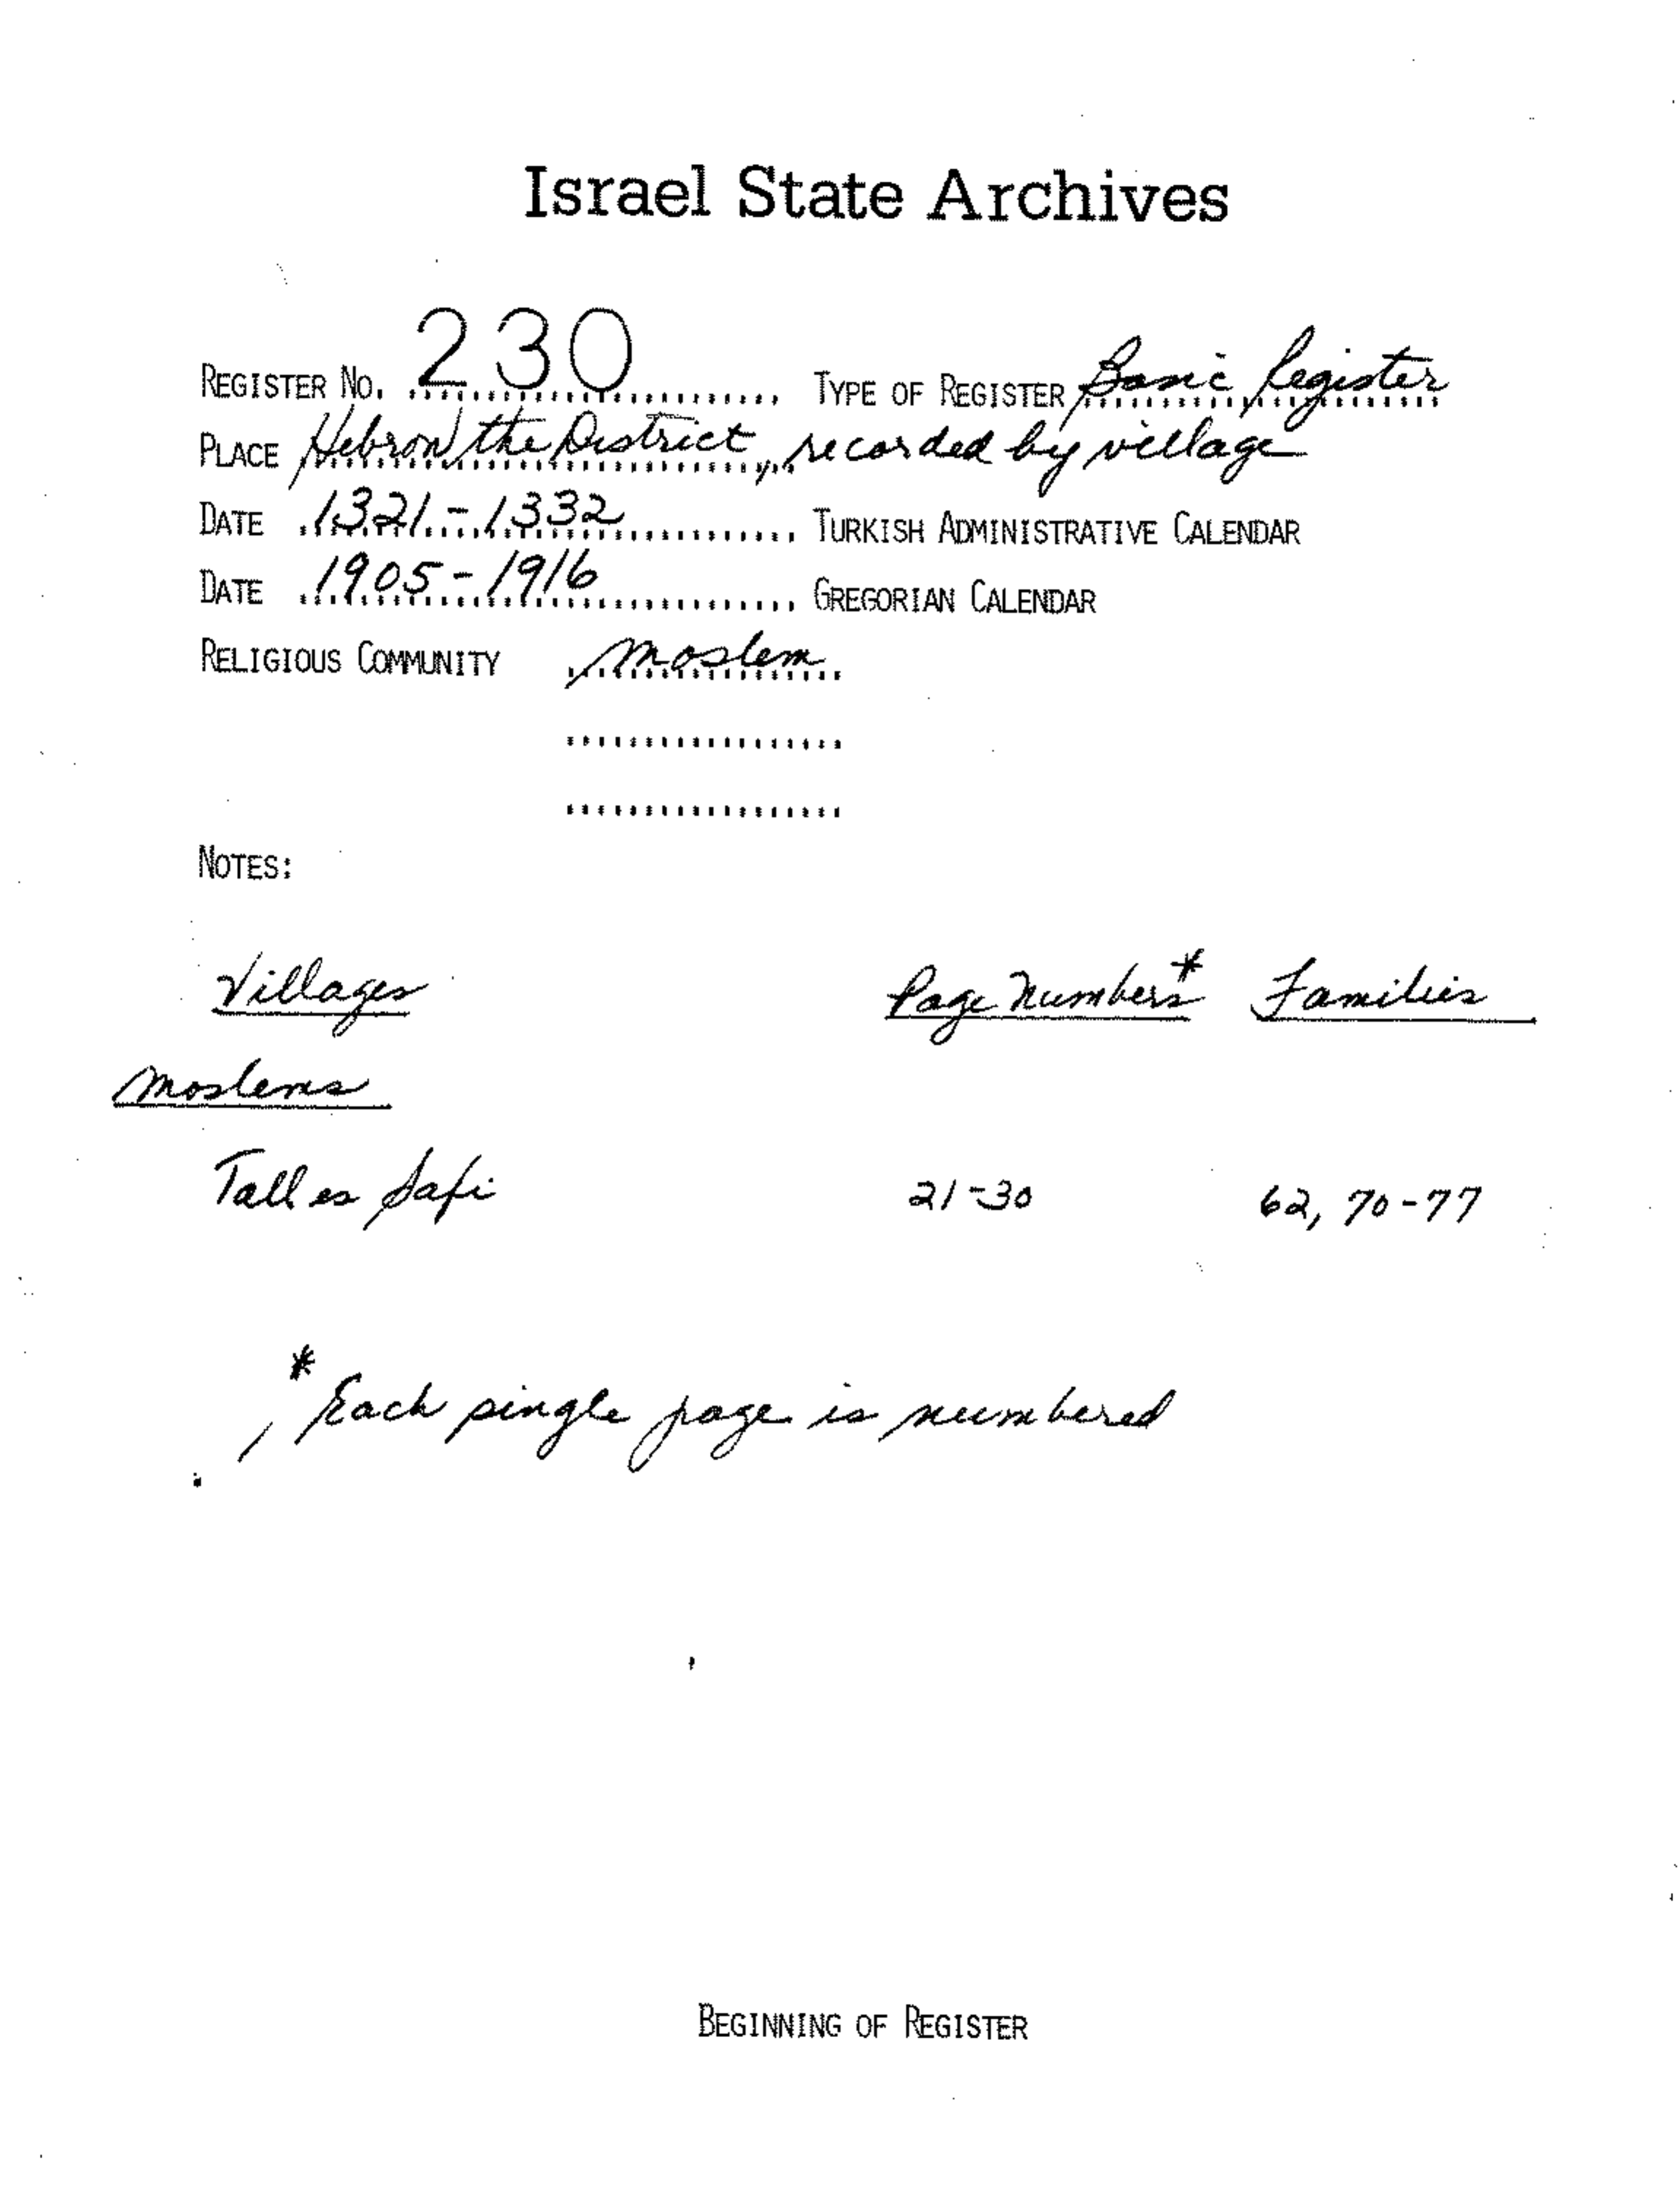 Israel State Archives
REGISTER NO. 230 TYPE OF REGISTER Basic Register
PLACE Hebron the District, recorded by village
DATE 1321-1332 TURKISH ADMINISTRATIVE CALENDAR
DATE 1905-1916 GREGORIAN CALENDAR
RELIGIOUS COMMUNITY Moslem
NOTES:
Villages Page Numbers* Families
Moslems
Tall es Safi 21-30 62, 70-77
* Each single page is numbered
BEGINNING OF REGISTER